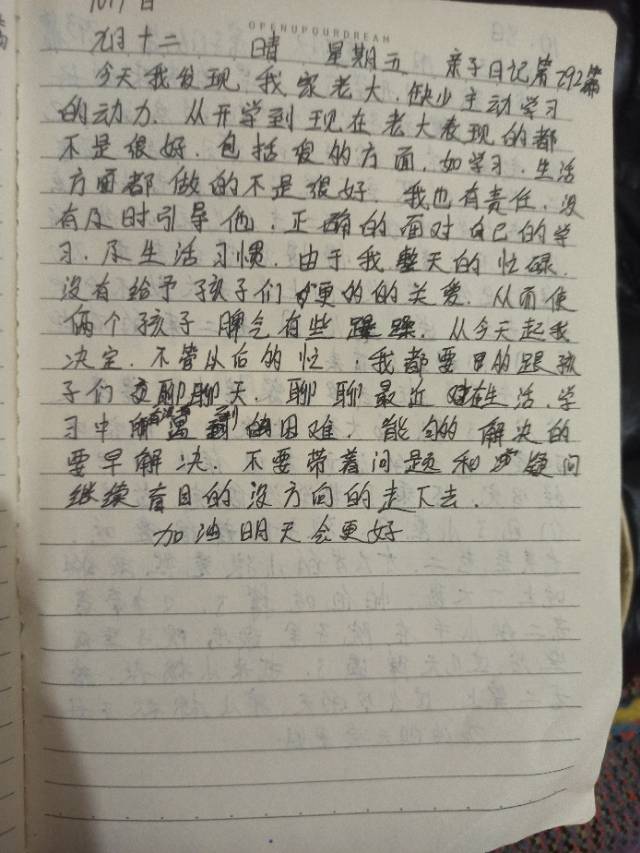 OPENUPOURDREAM
九月十二 晴 星期五 亲子日记第792篇
今天我发现,我家老大,缺少主动学习
的动力.从开学到现在老大表现的都
不是很好.包括的方面,如学习.生活
方面都做的不是很好.我也有责任,没
有及时引导他.正确的面对自己的学
习.及生活习惯.由于我整天的忙碌.
没有给予孩子们更的的关爱.从而使
俩个孩子脾气有些躁.从今天起我
决定.不管以后的忙.我都要的跟孩
子们聊聊天.聊聊最近在生活.学
习中所遇到的困难.能解决的
要早解决.不要带着问题和疑问
继续盲目的没方向的走下去.
加油明天会更好